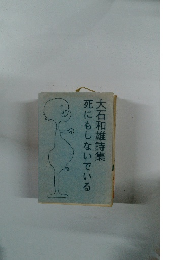 大石和雄詩集
死にもしないでいる